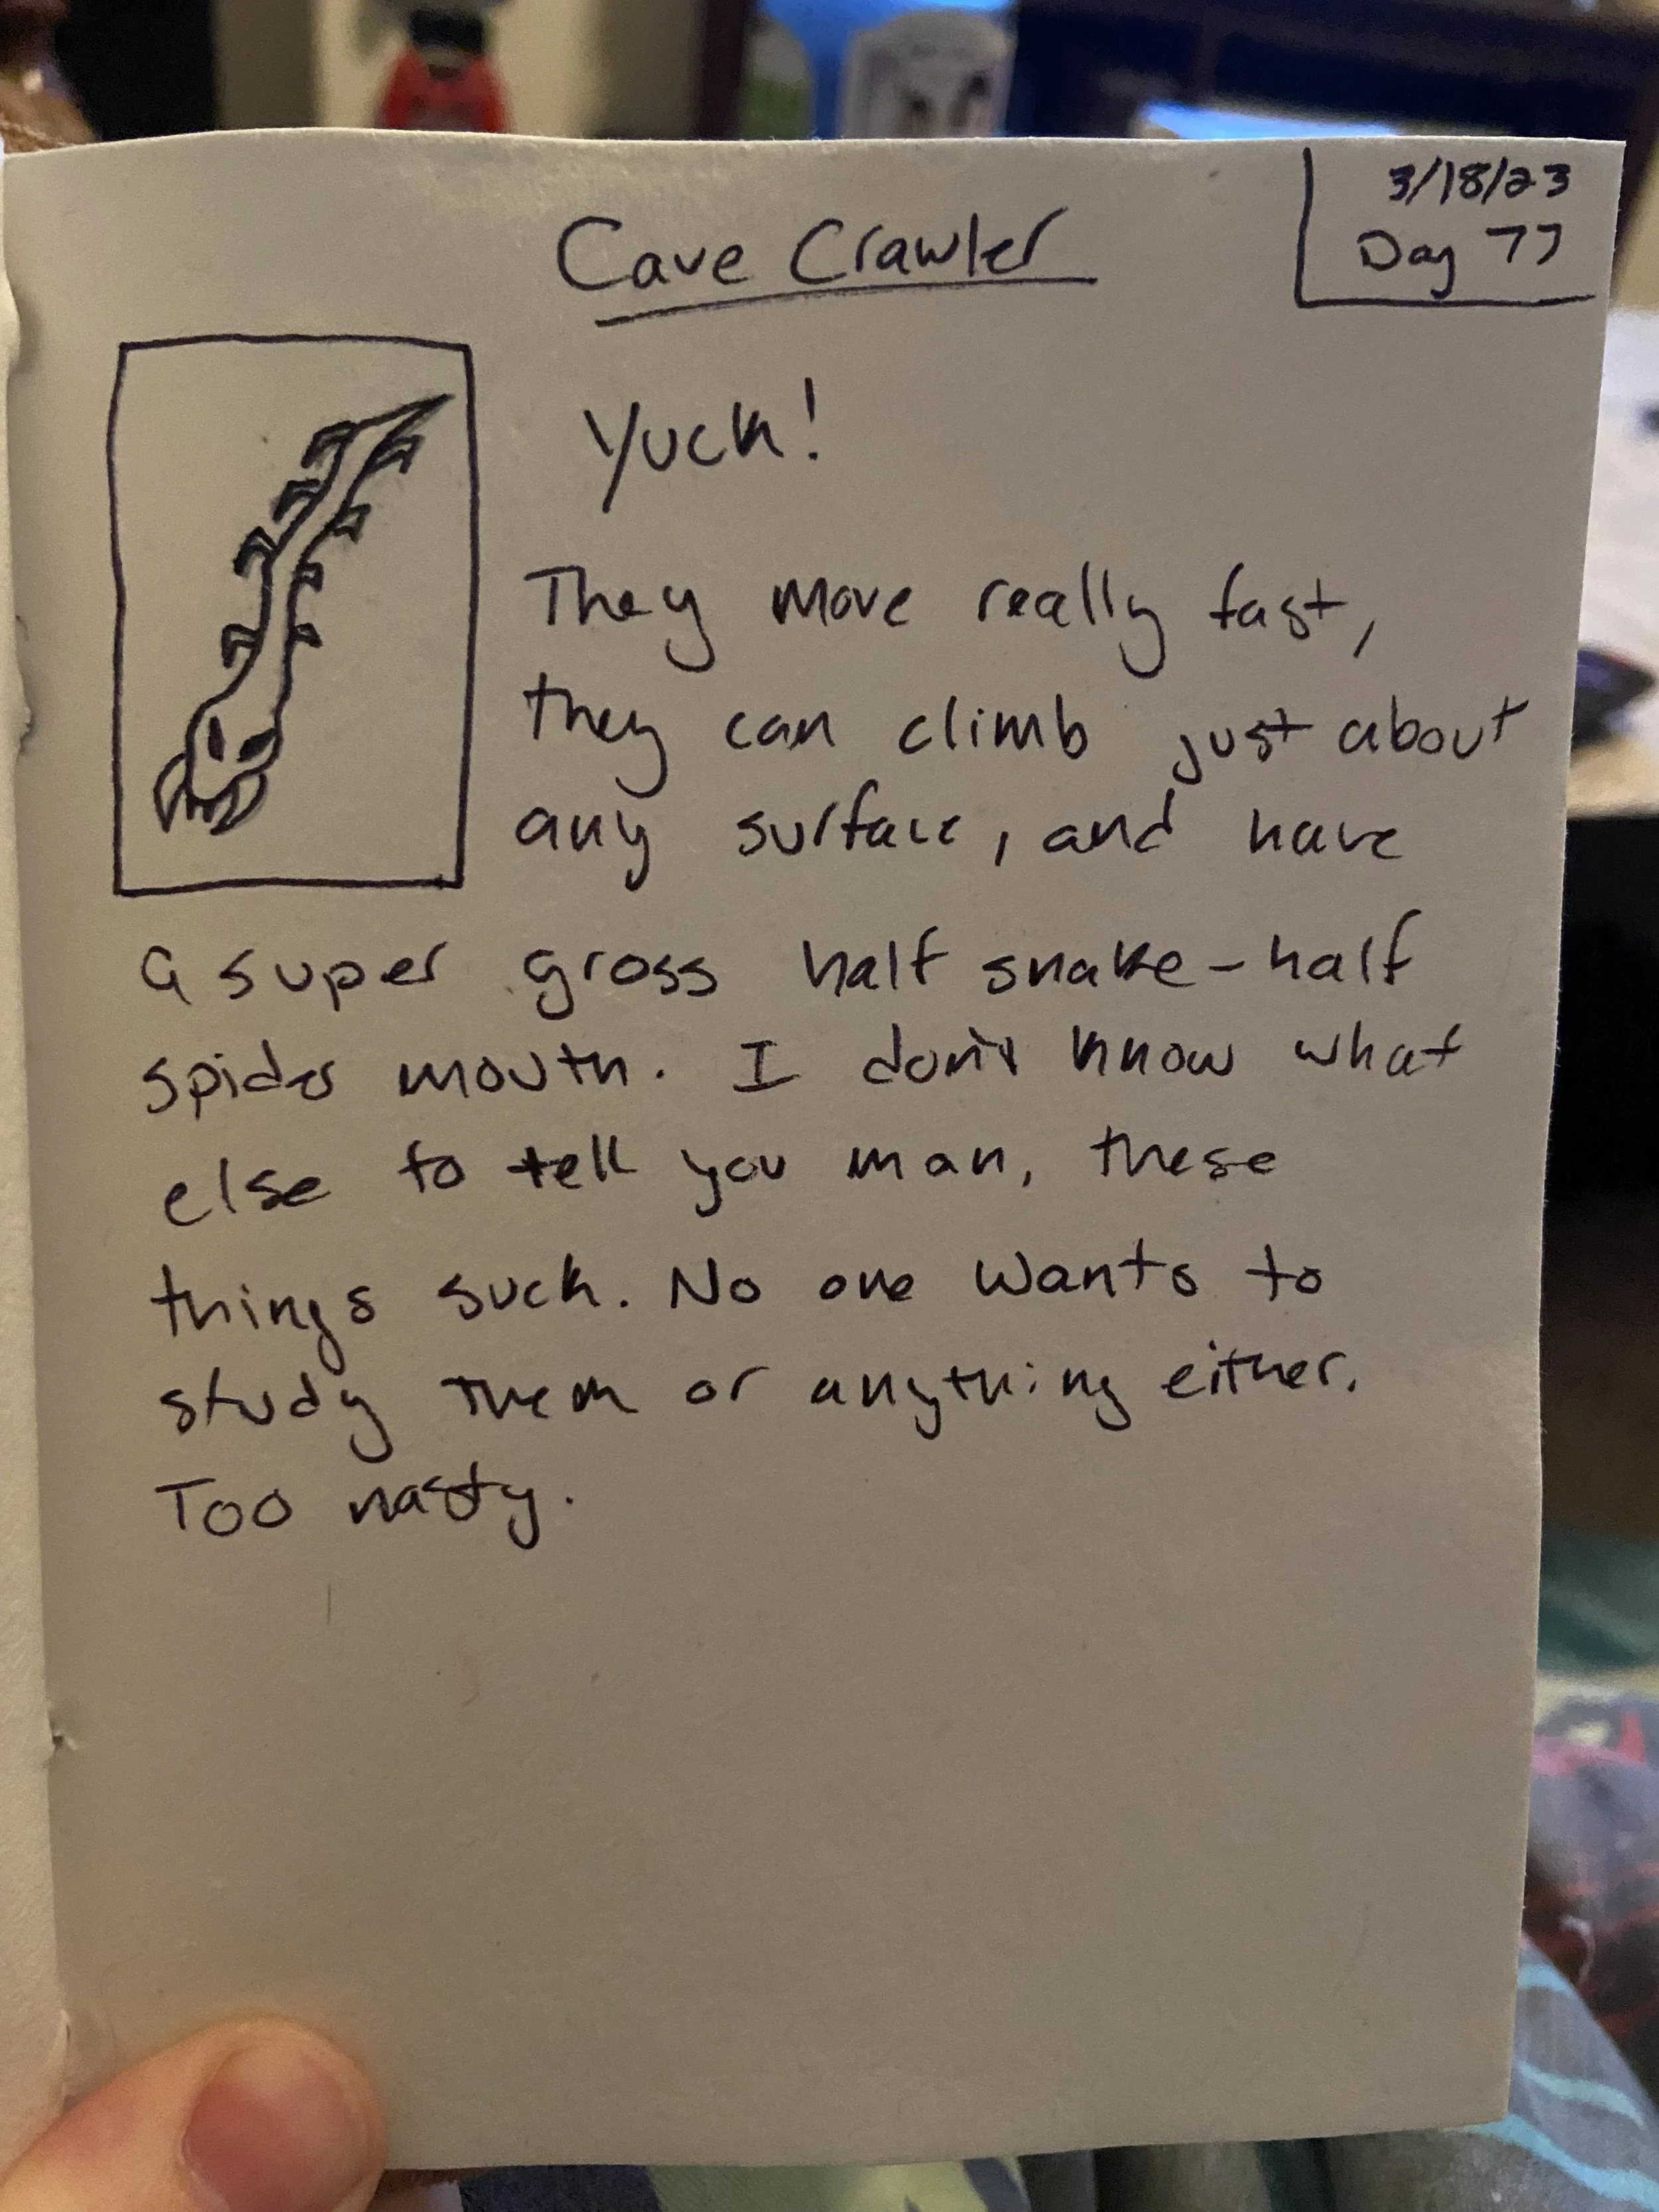 3/18/23
Day 77
Cave Crawler
Yuck!
They move really fast,
they can climb just about
any surface, and have
a super gross half snake-half
spider mouth. I don't know what
else to tell you man, these
things suck. No one wants to
study them or anything either.
Too nasty.